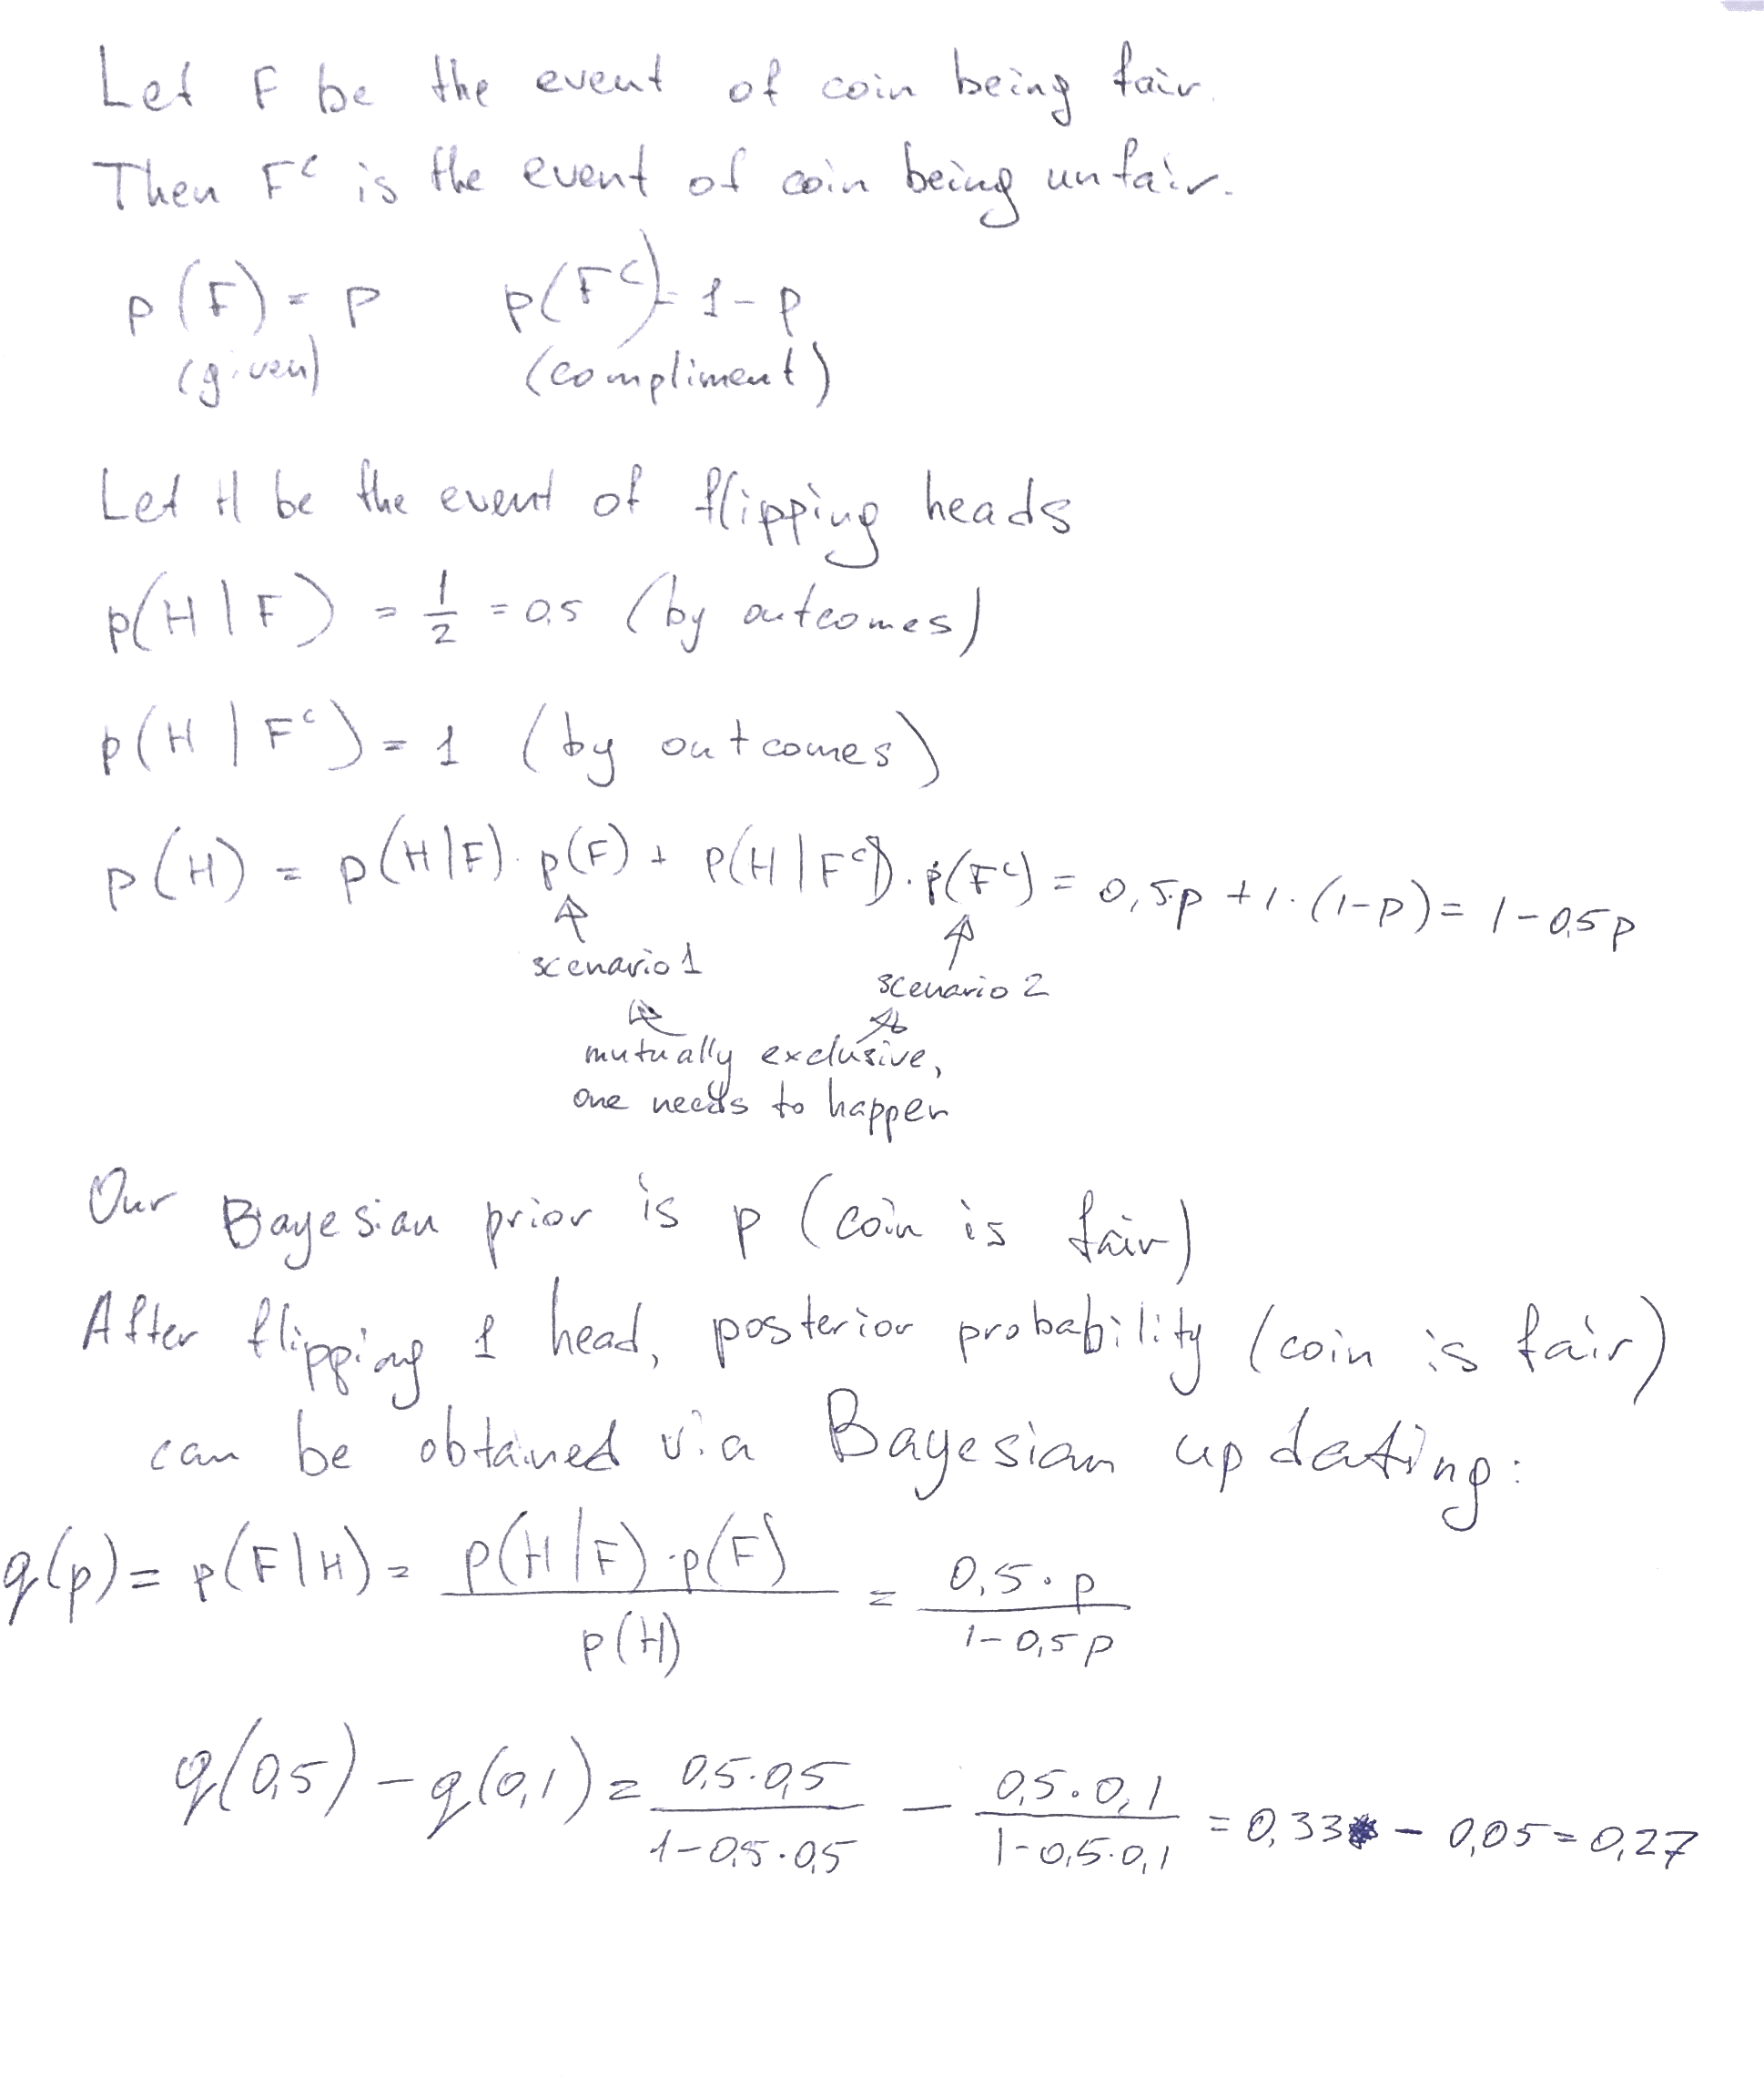 Let F be the event of coin being fair.
Then F^c is the event of coin being unfair.
p(F) = p p(F^c) = 1 - p
(given) (compliment)
Let H be the event of flipping heads
p(H | F) = 1/2 = 0,5 (by outcomes)
p(H | F^c) = 1 (by outcomes)
p(H) = p(H|F) · p(F) + p(H|F^c) · p(F^c) = 0,5·p + 1·(1-p) = 1 - 0,5p
scenario 1
scenario 2
mutually exclusive,
one needs to happen
Our Bayesian prior is p (coin is fair)
After flipping 1 head, posterior probability (coin is fair)
can be obtained via Bayesian updating:
q(p) = p(F|H) = p(H|F)·p(F) / p(H) = 0,5·p / 1-0,5p
q(0,5) - q(0,1) = 0,5·0,5 / 1-0,5·0,5 - 0,5·0,1 / 1-0,5·0,1 = 0,33 - 0,05 = 0,27